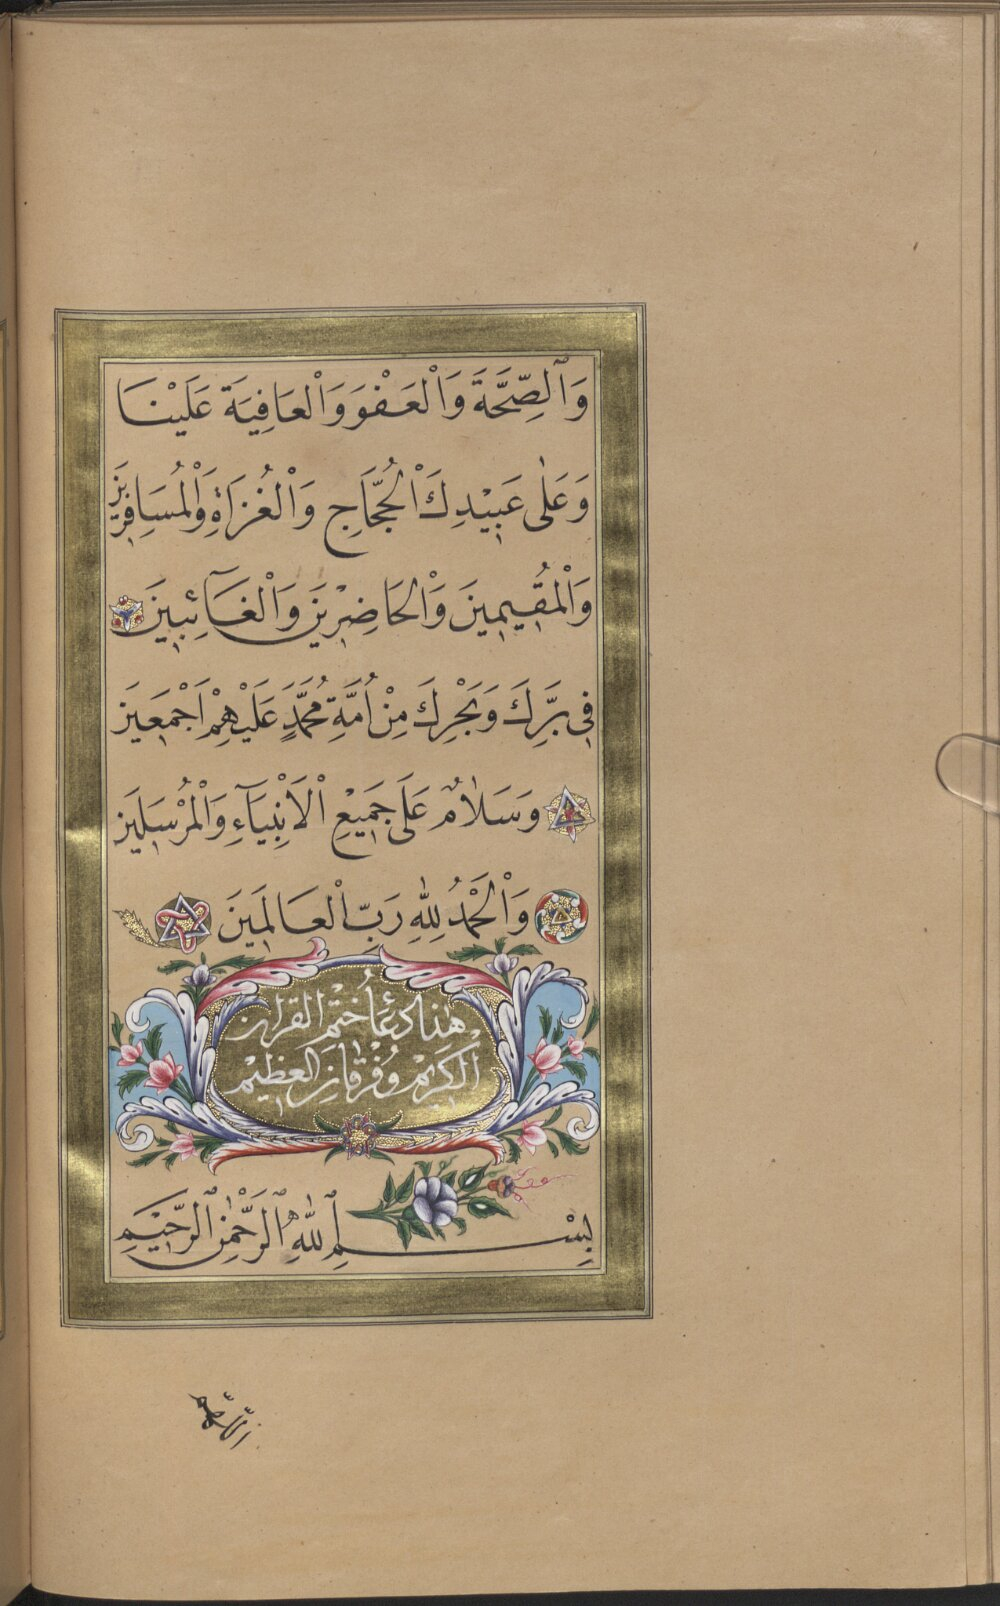 وَالصِّحَّةَ وَالْعَفْوَ وَالْعَافِيَةَ عَلَيْنَا
وَعَلٰى عَبِيْدِكَ الْحُجَّاجِ وَالْغُزَاةِ وَالْمُسَافِرِينَ
وَالْمُقِيمِينَ وَالْحَاضِرِينَ وَالْغَآئِبِينَ
فِي بَرِّكَ وَبَحْرِكَ مِنْ اُمَّةِ مُحَمَّدٍ عَلَيْهِمْ اَجْمَعِينَ
وَسَلَامٌ عَلَى جَمِيْعِ الْاَنْبِيَآءِ وَالْمُرْسَلِينَ
وَالْحَمْدُ لِلّٰهِ رَبِّ الْعَالَمِينَ
هٰذا دُعَٓاءُ خَتْمِ الْقُرْاٰنِ
الْكَرِيْمِ وَفُرْقَانِ الْعَظِيْمِ
بِسْمِ اللّٰهِ الرَّحْمٰنِ الرَّحِيْمِ